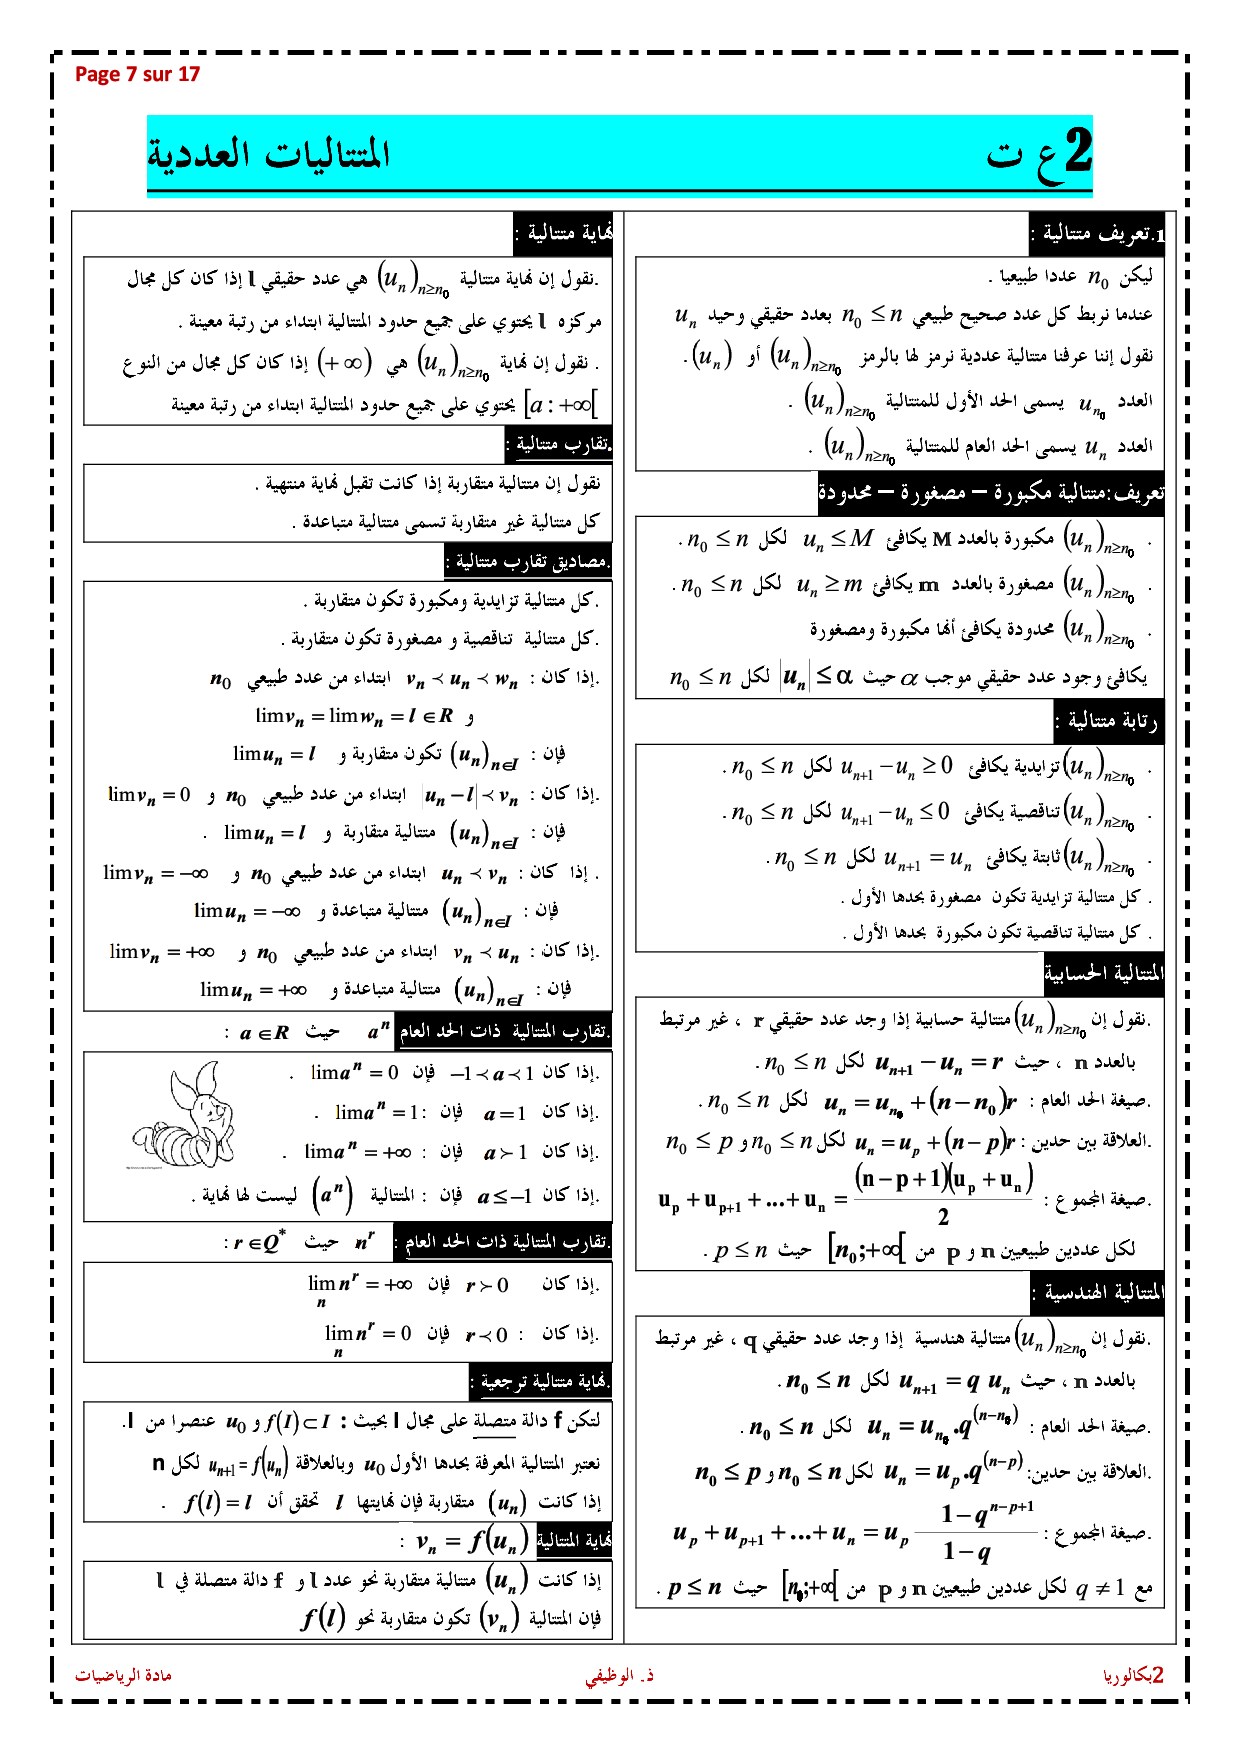 Page 7 sur 17
2ع ت المتتاليات العددية
1.تعريف متتالية :
ليكن n₀ عددا طبيعيا .
عندما نربط كل عدد صحيح طبيعي n₀ ≤ n بعدد حقيقي وحيد uₙ
نقول إننا عرفنا متتالية عددية نرمز لها بالرمز (uₙ)ₙ≥ₙ₀ أو (uₙ).
العدد uₙ₀ يسمى الحد الأول للمتتالية (uₙ)ₙ≥ₙ₀ .
العدد uₙ يسمى الحد العام للمتتالية (uₙ)ₙ≥ₙ₀ .
تعريف:متتالية مكبورة – مصغورة – محدودة
. (uₙ)ₙ≥ₙ₀ مكبورة بالعدد M يكافئ uₙ ≤ M لكل n₀ ≤ n .
. (uₙ)ₙ≥ₙ₀ مصغورة بالعدد m يكافئ uₙ ≥ m لكل n₀ ≤ n .
. (uₙ)ₙ≥ₙ₀ محدودة يكافئ أنها مكبورة ومصغورة
يكافئ وجود عدد حقيقي موجب α حيث |uₙ| ≤ α لكل n₀ ≤ n
رتابة متتالية :
. (uₙ)ₙ≥ₙ₀ تزايدية يكافئ uₙ₊₁ − uₙ ≥ 0 لكل n₀ ≤ n .
. (uₙ)ₙ≥ₙ₀ تناقصية يكافئ uₙ₊₁ − uₙ ≤ 0 لكل n₀ ≤ n .
. (uₙ)ₙ≥ₙ₀ ثابتة يكافئ uₙ₊₁ = uₙ لكل n₀ ≤ n .
. كل متتالية تزايدية تكون مصغورة بحدها الأول .
. كل متتالية تناقصية تكون مكبورة بحدها الأول .
المتتالية الحسابية
.نقول إن (uₙ)ₙ≥ₙ₀ متتالية حسابية إذا وجد عدد حقيقي r ، غير مرتبط
بالعدد n ، حيث uₙ₊₁ − uₙ = r لكل n₀ ≤ n .
.صيغة الحد العام : uₙ = uₙ₀ + (n − n₀)r لكل n₀ ≤ n .
.العلاقة بين حدين : uₙ = uₚ + (n − p)r لكل n₀ ≤ n و n₀ ≤ p
.صيغة المجموع : uₚ + uₚ₊₁ + ... + uₙ = (n − p + 1)(uₚ + uₙ) / 2
لكل عددين طبيعيين n و p من [n₀;+∞[ حيث p ≤ n .
المتتالية الهندسية :
.نقول إن (uₙ)ₙ≥ₙ₀ متتالية هندسية إذا وجد عدد حقيقي q ، غير مرتبط
بالعدد n ، حيث uₙ₊₁ = q uₙ لكل n₀ ≤ n .
.صيغة الحد العام : uₙ = uₙ₀.q^(n−n₀) لكل n₀ ≤ n .
.العلاقة بين حدين: uₙ = uₚ.q^(n−p) لكل n₀ ≤ n و n₀ ≤ p
.صيغة المجموع : uₚ + uₚ₊₁ + ... + uₙ = uₚ (1 − q^(n−p+1)) / (1 − q)
مع q ≠ 1 لكل عددين طبيعيين n و p من [n₀;+∞[ حيث p ≤ n .
نهاية متتالية :
.نقول إن نهاية متتالية (uₙ)ₙ≥ₙ₀ هي عدد حقيقي l إذا كان كل مجال
مركزه l يحتوي على جميع حدود المتتالية ابتداء من رتبة معينة .
. نقول إن نهاية (uₙ)ₙ≥ₙ₀ هي (+∞) إذا كان كل مجال من النوع
[a : +∞[ يحتوي على جميع حدود المتتالية ابتداء من رتبة معينة
.تقارب متتالية :
نقول إن متتالية متقاربة إذا كانت تقبل نهاية منتهية .
كل متتالية غير متقاربة تسمى متتالية متباعدة .
.مصاديق تقارب متتالية :
.كل متتالية تزايدية ومكبورة تكون متقاربة .
.كل متتالية تناقصية و مصغورة تكون متقاربة .
.إذا كان : vₙ ≺ uₙ ≺ wₙ ابتداء من عدد طبيعي n₀
و lim vₙ = lim wₙ = l ∈ R
فإن : (uₙ)ₙ∈I تكون متقاربة و lim uₙ = l
.إذا كان : |uₙ − l| ≺ vₙ ابتداء من عدد طبيعي n₀ و lim vₙ = 0
فإن : (uₙ)ₙ∈I متتالية متقاربة و lim uₙ = l .
. إذا كان : uₙ ≺ vₙ ابتداء من عدد طبيعي n₀ و lim vₙ = −∞
فإن : (uₙ)ₙ∈I متتالية متباعدة و lim uₙ = −∞
.إذا كان : vₙ ≺ uₙ ابتداء من عدد طبيعي n₀ و lim vₙ = +∞
فإن : (uₙ)ₙ∈I متتالية متباعدة و lim uₙ = +∞
.تقارب المتتالية ذات الحد العام aⁿ حيث a ∈ R :
.إذا كان −1 ≺ a ≺ 1 فإن lim aⁿ = 0 .
.إذا كان a = 1 فإن : lim aⁿ = 1 .
.إذا كان a ≻ 1 فإن : lim aⁿ = +∞ .
.إذا كان a ≤ −1 فإن : المتتالية (aⁿ) ليست لها نهاية .
.تقارب المتتالية ذات الحد العام : nʳ حيث r ∈ Q* :
.إذا كان r ≻ 0 فإن lim nʳ = +∞
n
.إذا كان : r ≺ 0 فإن lim nʳ = 0
n
.نهاية متتالية ترجعية :
لتكن f دالة متصلة على مجال I بحيث : f(I) ⊂ I و u₀ عنصرا من I.
نعتبر المتتالية المعرفة بحدها الأول u₀ وبالعلاقة uₙ₊₁ = f(uₙ) لكل n
إذا كانت (uₙ) متقاربة فإن نهايتها l تحقق أن f(l) = l .
نهاية المتتالية vₙ = f(uₙ) :
إذا كانت (uₙ) متتالية متقاربة نحو عدد l و f دالة متصلة في l
فإن المتتالية (vₙ) تكون متقاربة نحو f(l)
2بكالوريا ذ. الوظيفي مادة الرياضيات